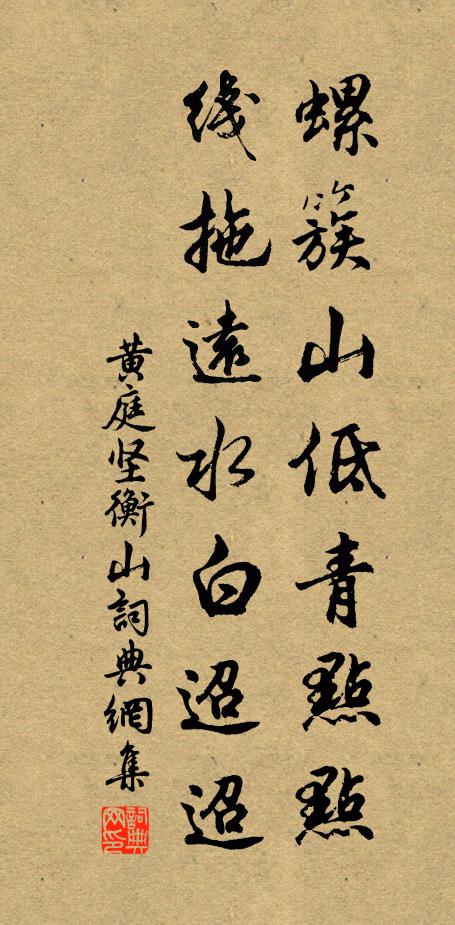 螺簇山低青點點
綫拖遠水白迢迢
黃庭坚衡山詞典網集
詞典網印